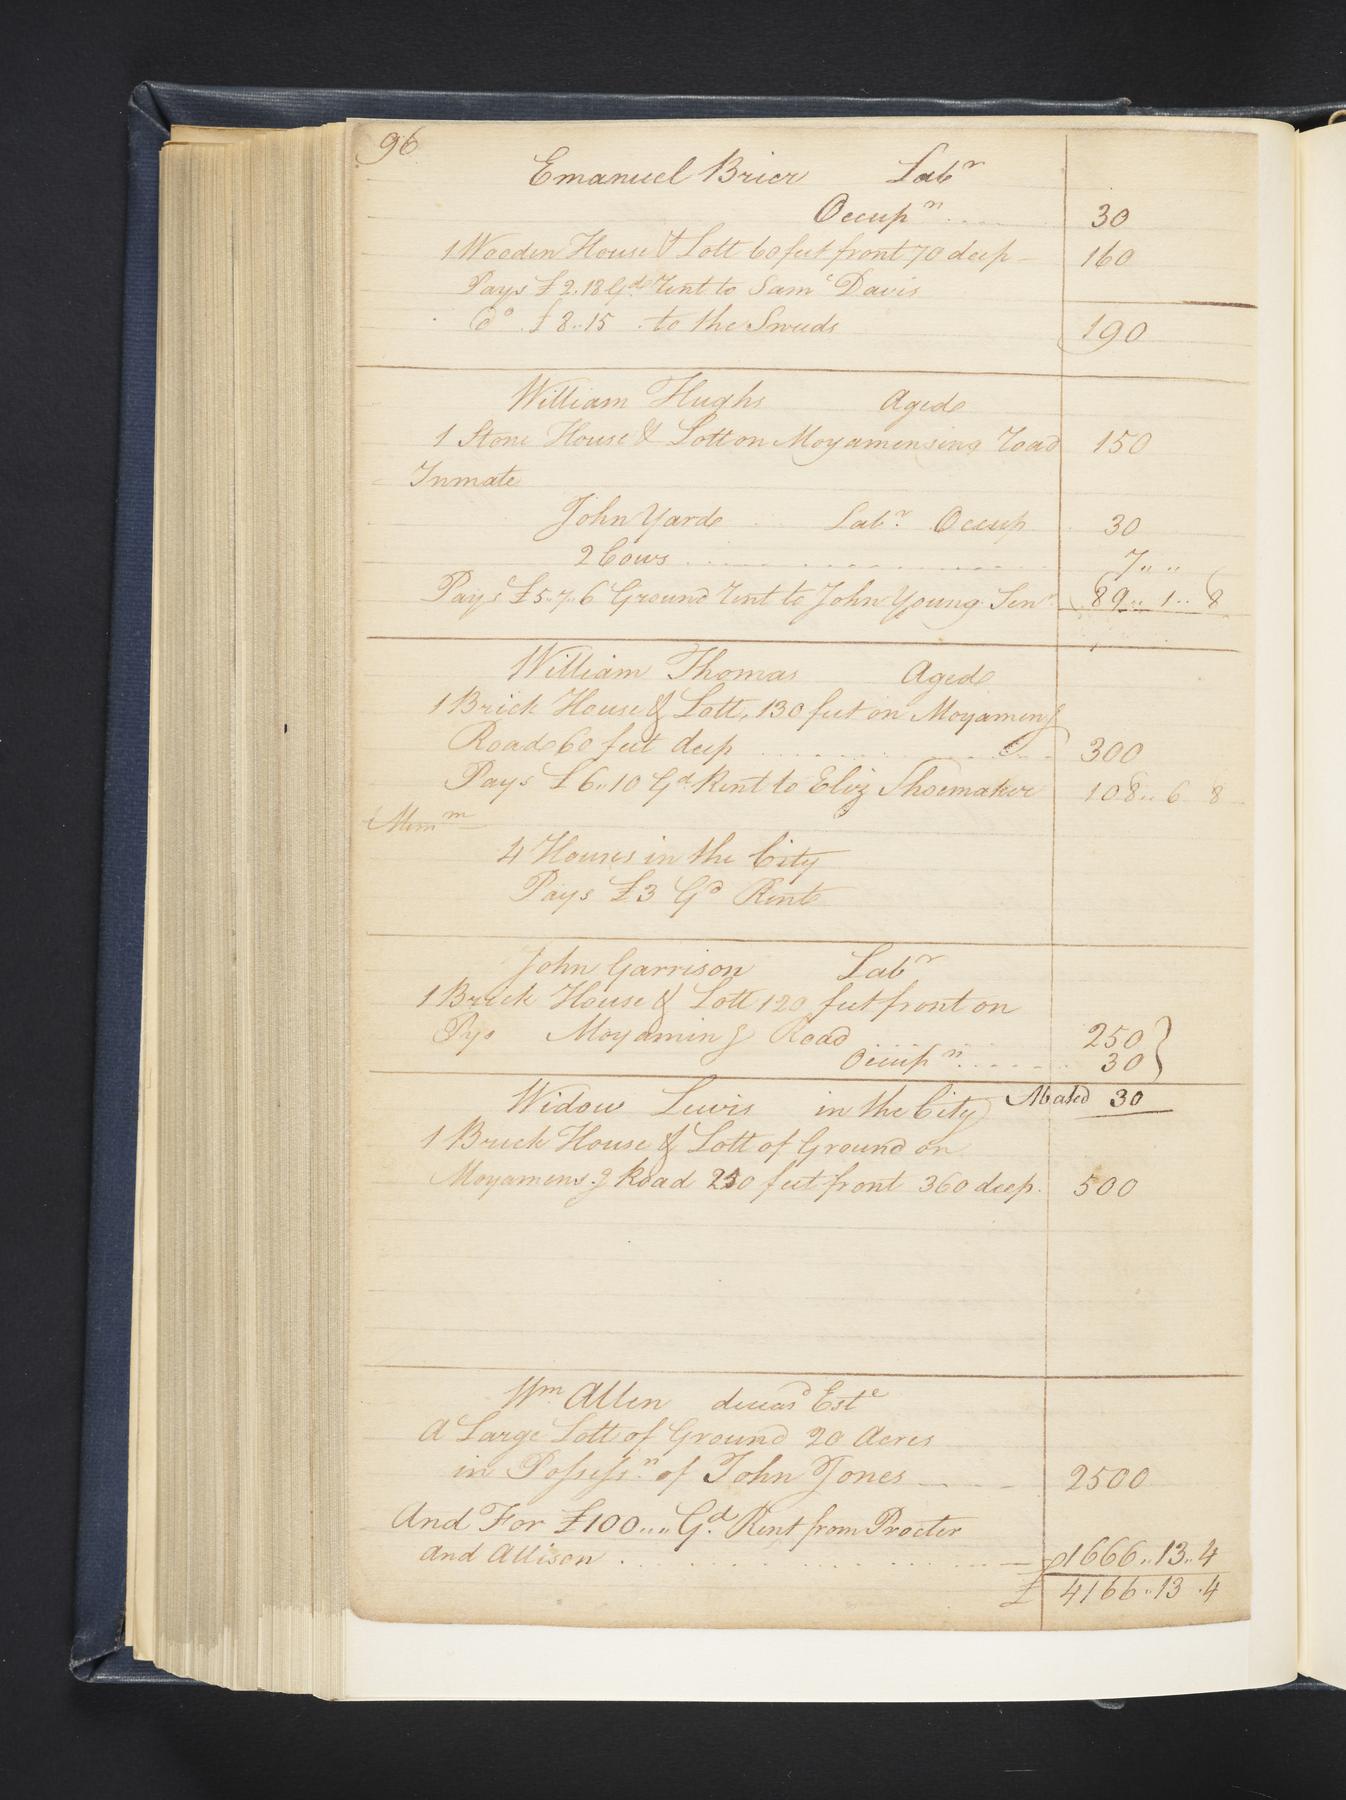 96
Emanuel Brier Labr
Occupn .... 30
1 Wooden House & Lott 60 feet front 70 deep - 160
Pays £2.18 Gd Rent to Saml Davis
Do £8..15 to the Sweeds 190
William Hughs Aged
1 Stone House & Lott on Moyamensing Road 150
Inmate
John Yard Labr Occup 30
2 Cows .... 7.. ..
Pays £5..7..6 Ground Rent to John Young Senr 89..1..8
William Thomas Aged
1 Brick House & Lott, 130 feet on Moyameng
Road 60 feet deep .... 300
Pays £6..10 Gd Rent to Eliz Shoemaker 108..6 8
Memm
4 Houses in the City
Pays £3 Gd Rent
John Garrison Labr
1 Brick House & Lott 120 feet front on
Pys Moyaming Road 250
Occupn ...... 30
Widow Lewis in the City Abated 30
1 Brick House & Lott of Ground on
Moyamens.g Road 250 feet front 360 deep. 500
Wm Allen deceasd Este
A Large Lott of Ground 20 Acres
in Possessn of John Jones 2500
And For £100.... Gd Rent from Procter
And Allison .... 1666..13..4
£ 4166..13.4